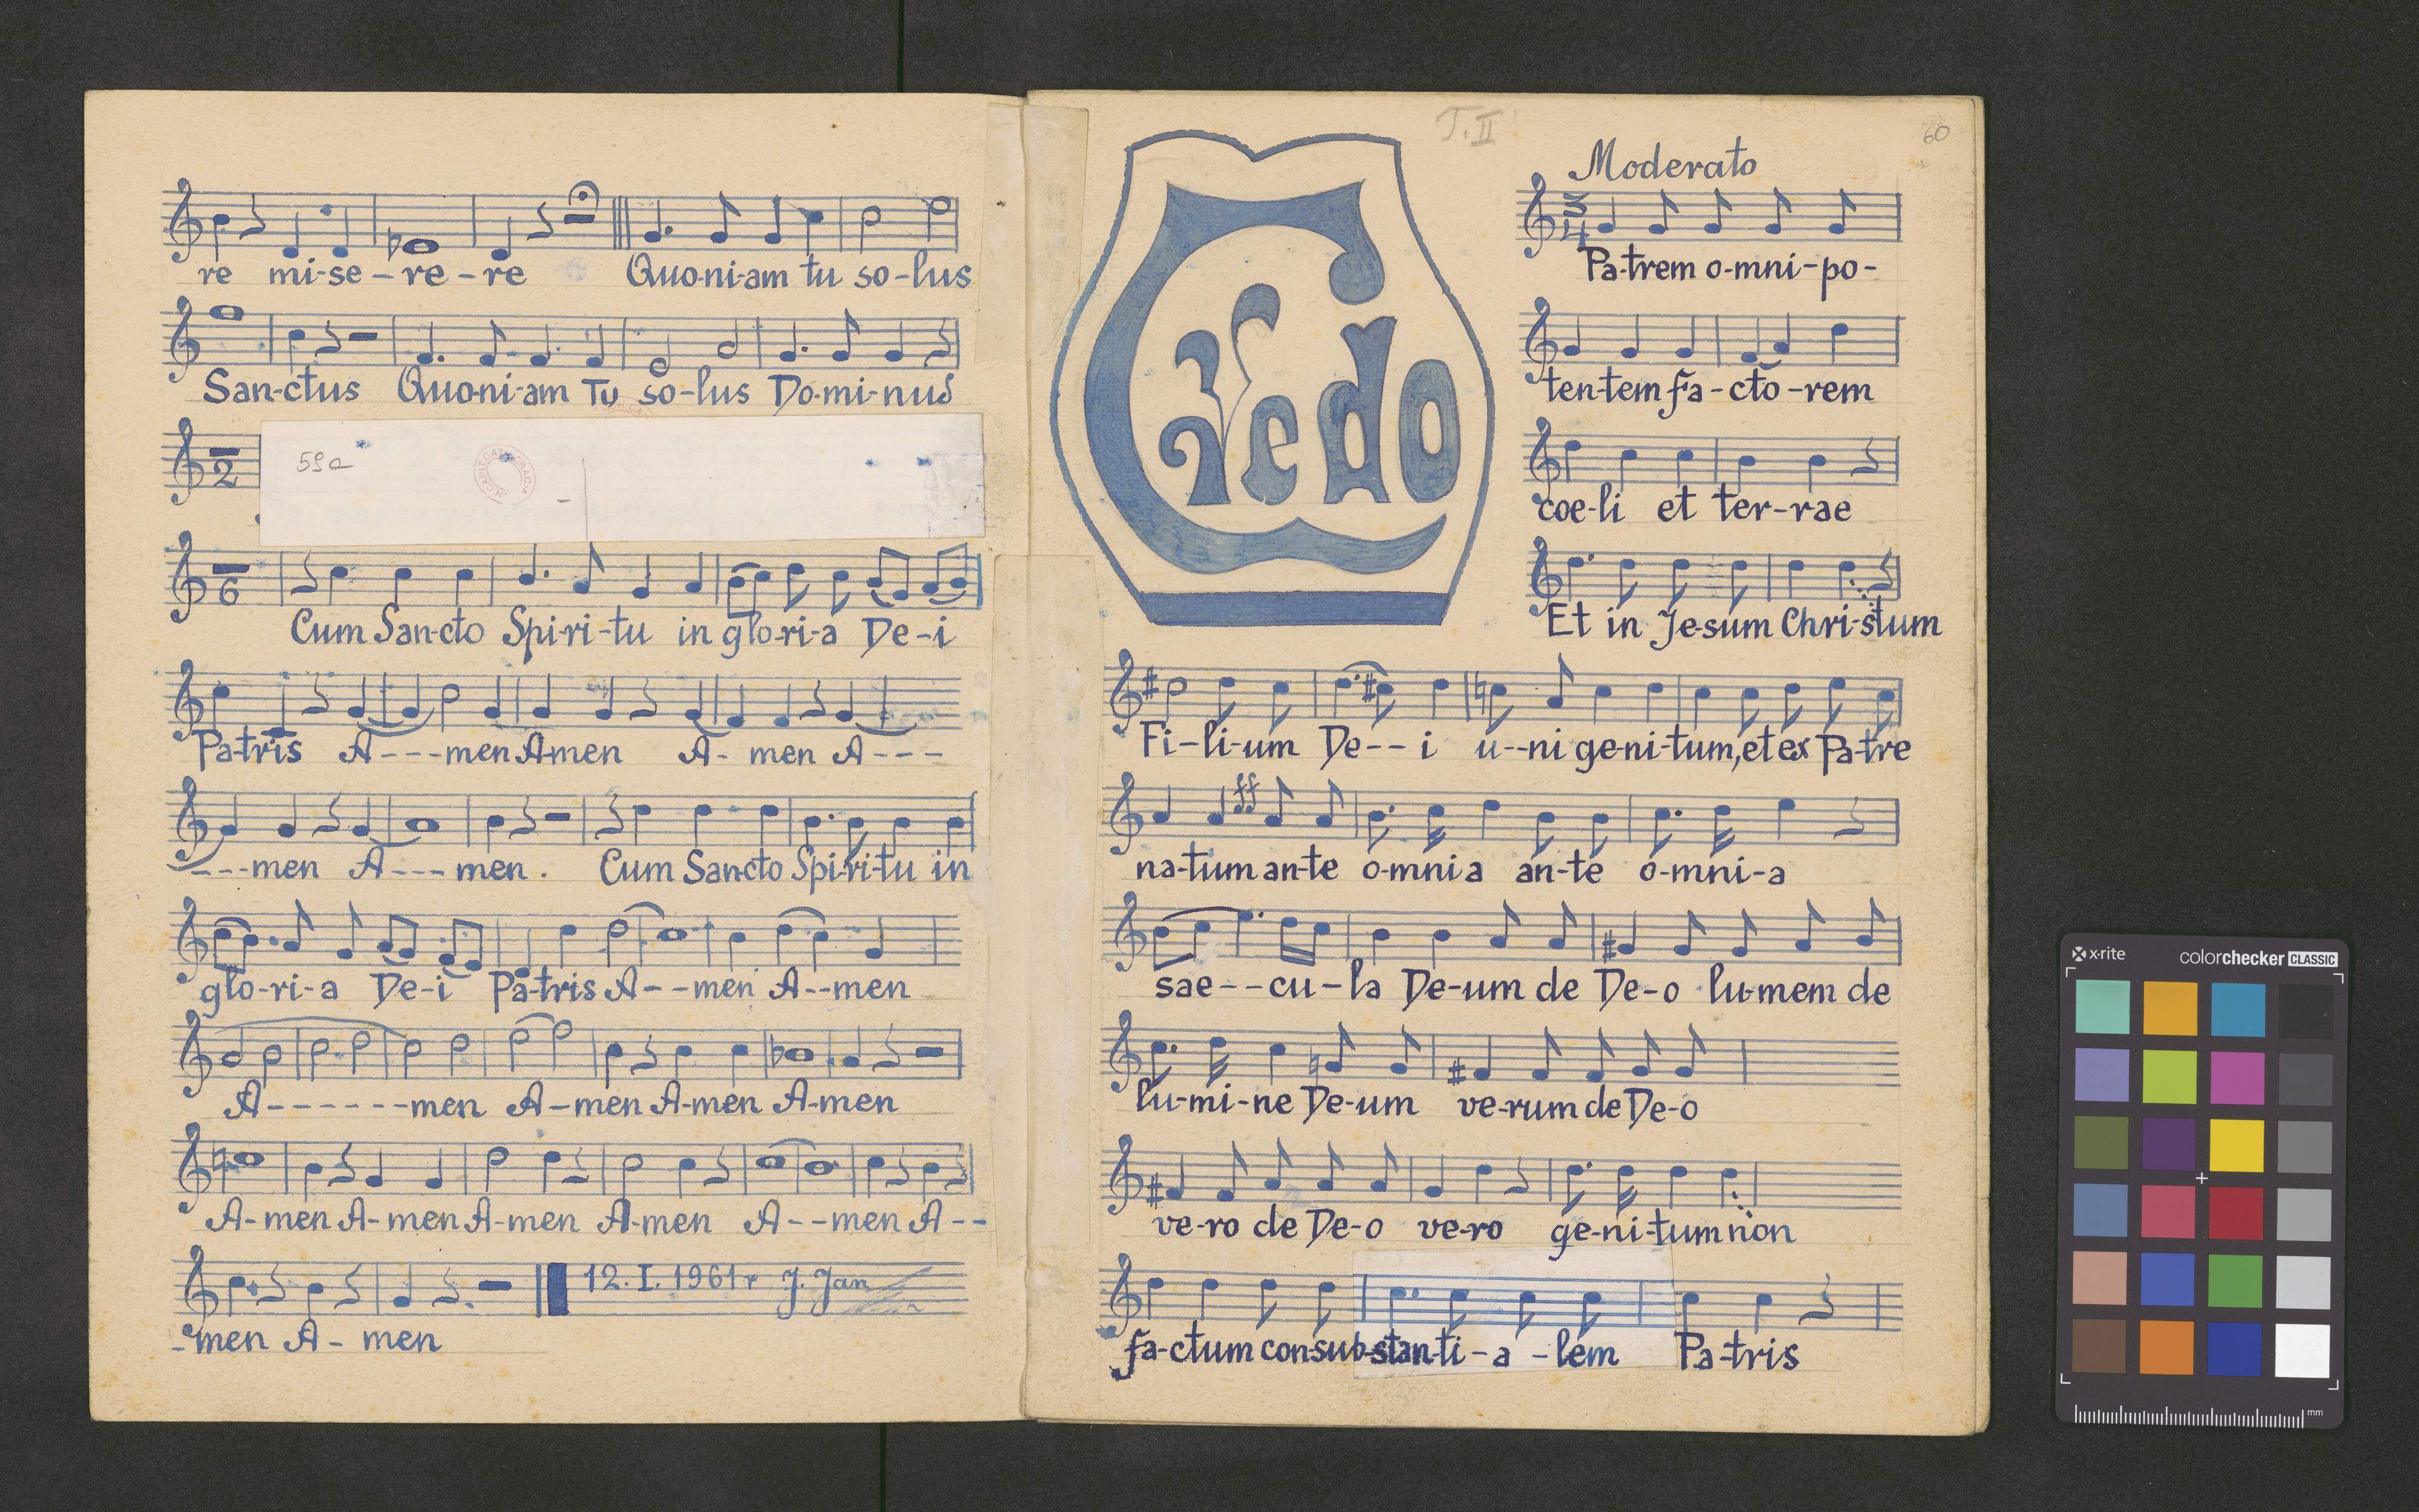 re mi-se-re-re Quo-ni-am tu so-lus
San-ctus Quo-ni-am Tu so-lus Do-mi-nus
2
59a
6
Cum San-cto Spi-ri-tu in glo-ri-a De-i
Pa-tris A---men A-men A-men A---
---men A---men. Cum San-cto Spi-ri-tu in
glo-ri-a De-i Pa-tris A--men A--men
A------men A-men A-men A-men
A-men A-men A-men A-men A--men A--
12.I.1961r J. Jan
-men A-men
T.II
60
Credo
Moderato
3
4
Pa-trem o-mni-po-
ten-tem fa-cto-rem
coe-li et ter-rae
Et in Je-sum Chri-stum
Fi-li-um De--i u--ni ge-ni-tum, et ex Pa-tre
ff
na-tum an-te o-mni a an-te o-mni-a
sae--cu-la De-um de De-o lu-mem de
lu-mi-ne De-um ve-rum de De-o
ve-ro de De-o ve-ro ge-ni-tum non
fa-ctum con-sub-stan-ti-a-lem Pa-tris
x-rite colorchecker CLASSIC
mm